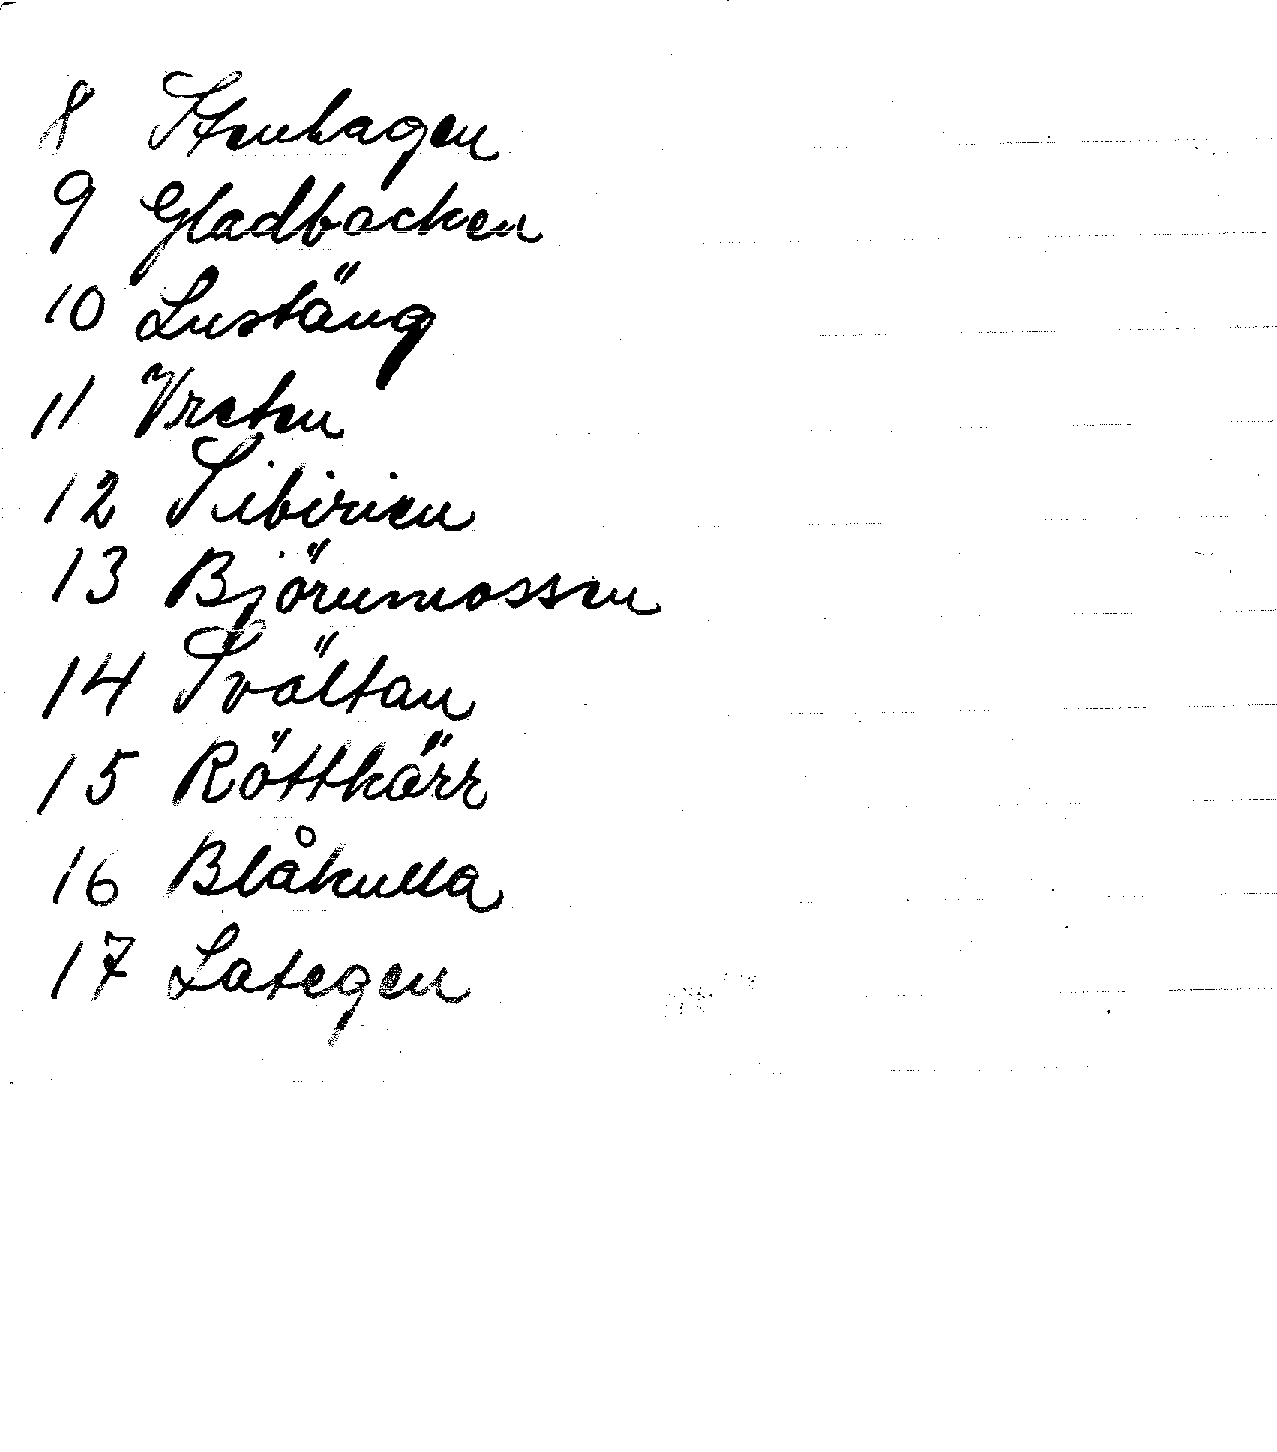 8 Stenhagen
9 Gladbacken
10 Lustäng
11 Vreten
12 Sibirien
13 Björnmossen
14 Svältan
15 Röttkärr
16 Blåkulla
17 Lategen